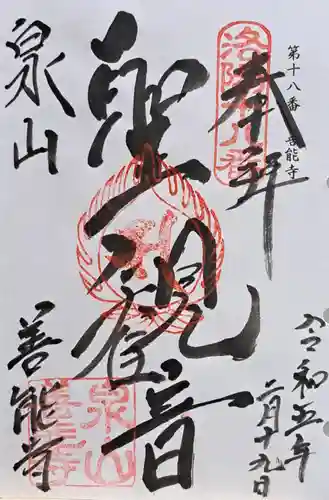 第十八番 善能寺
奉拝
洛陽十八番
聖観音
泉山
善能寺
泉山
善能寺
令和五年
二月十九日